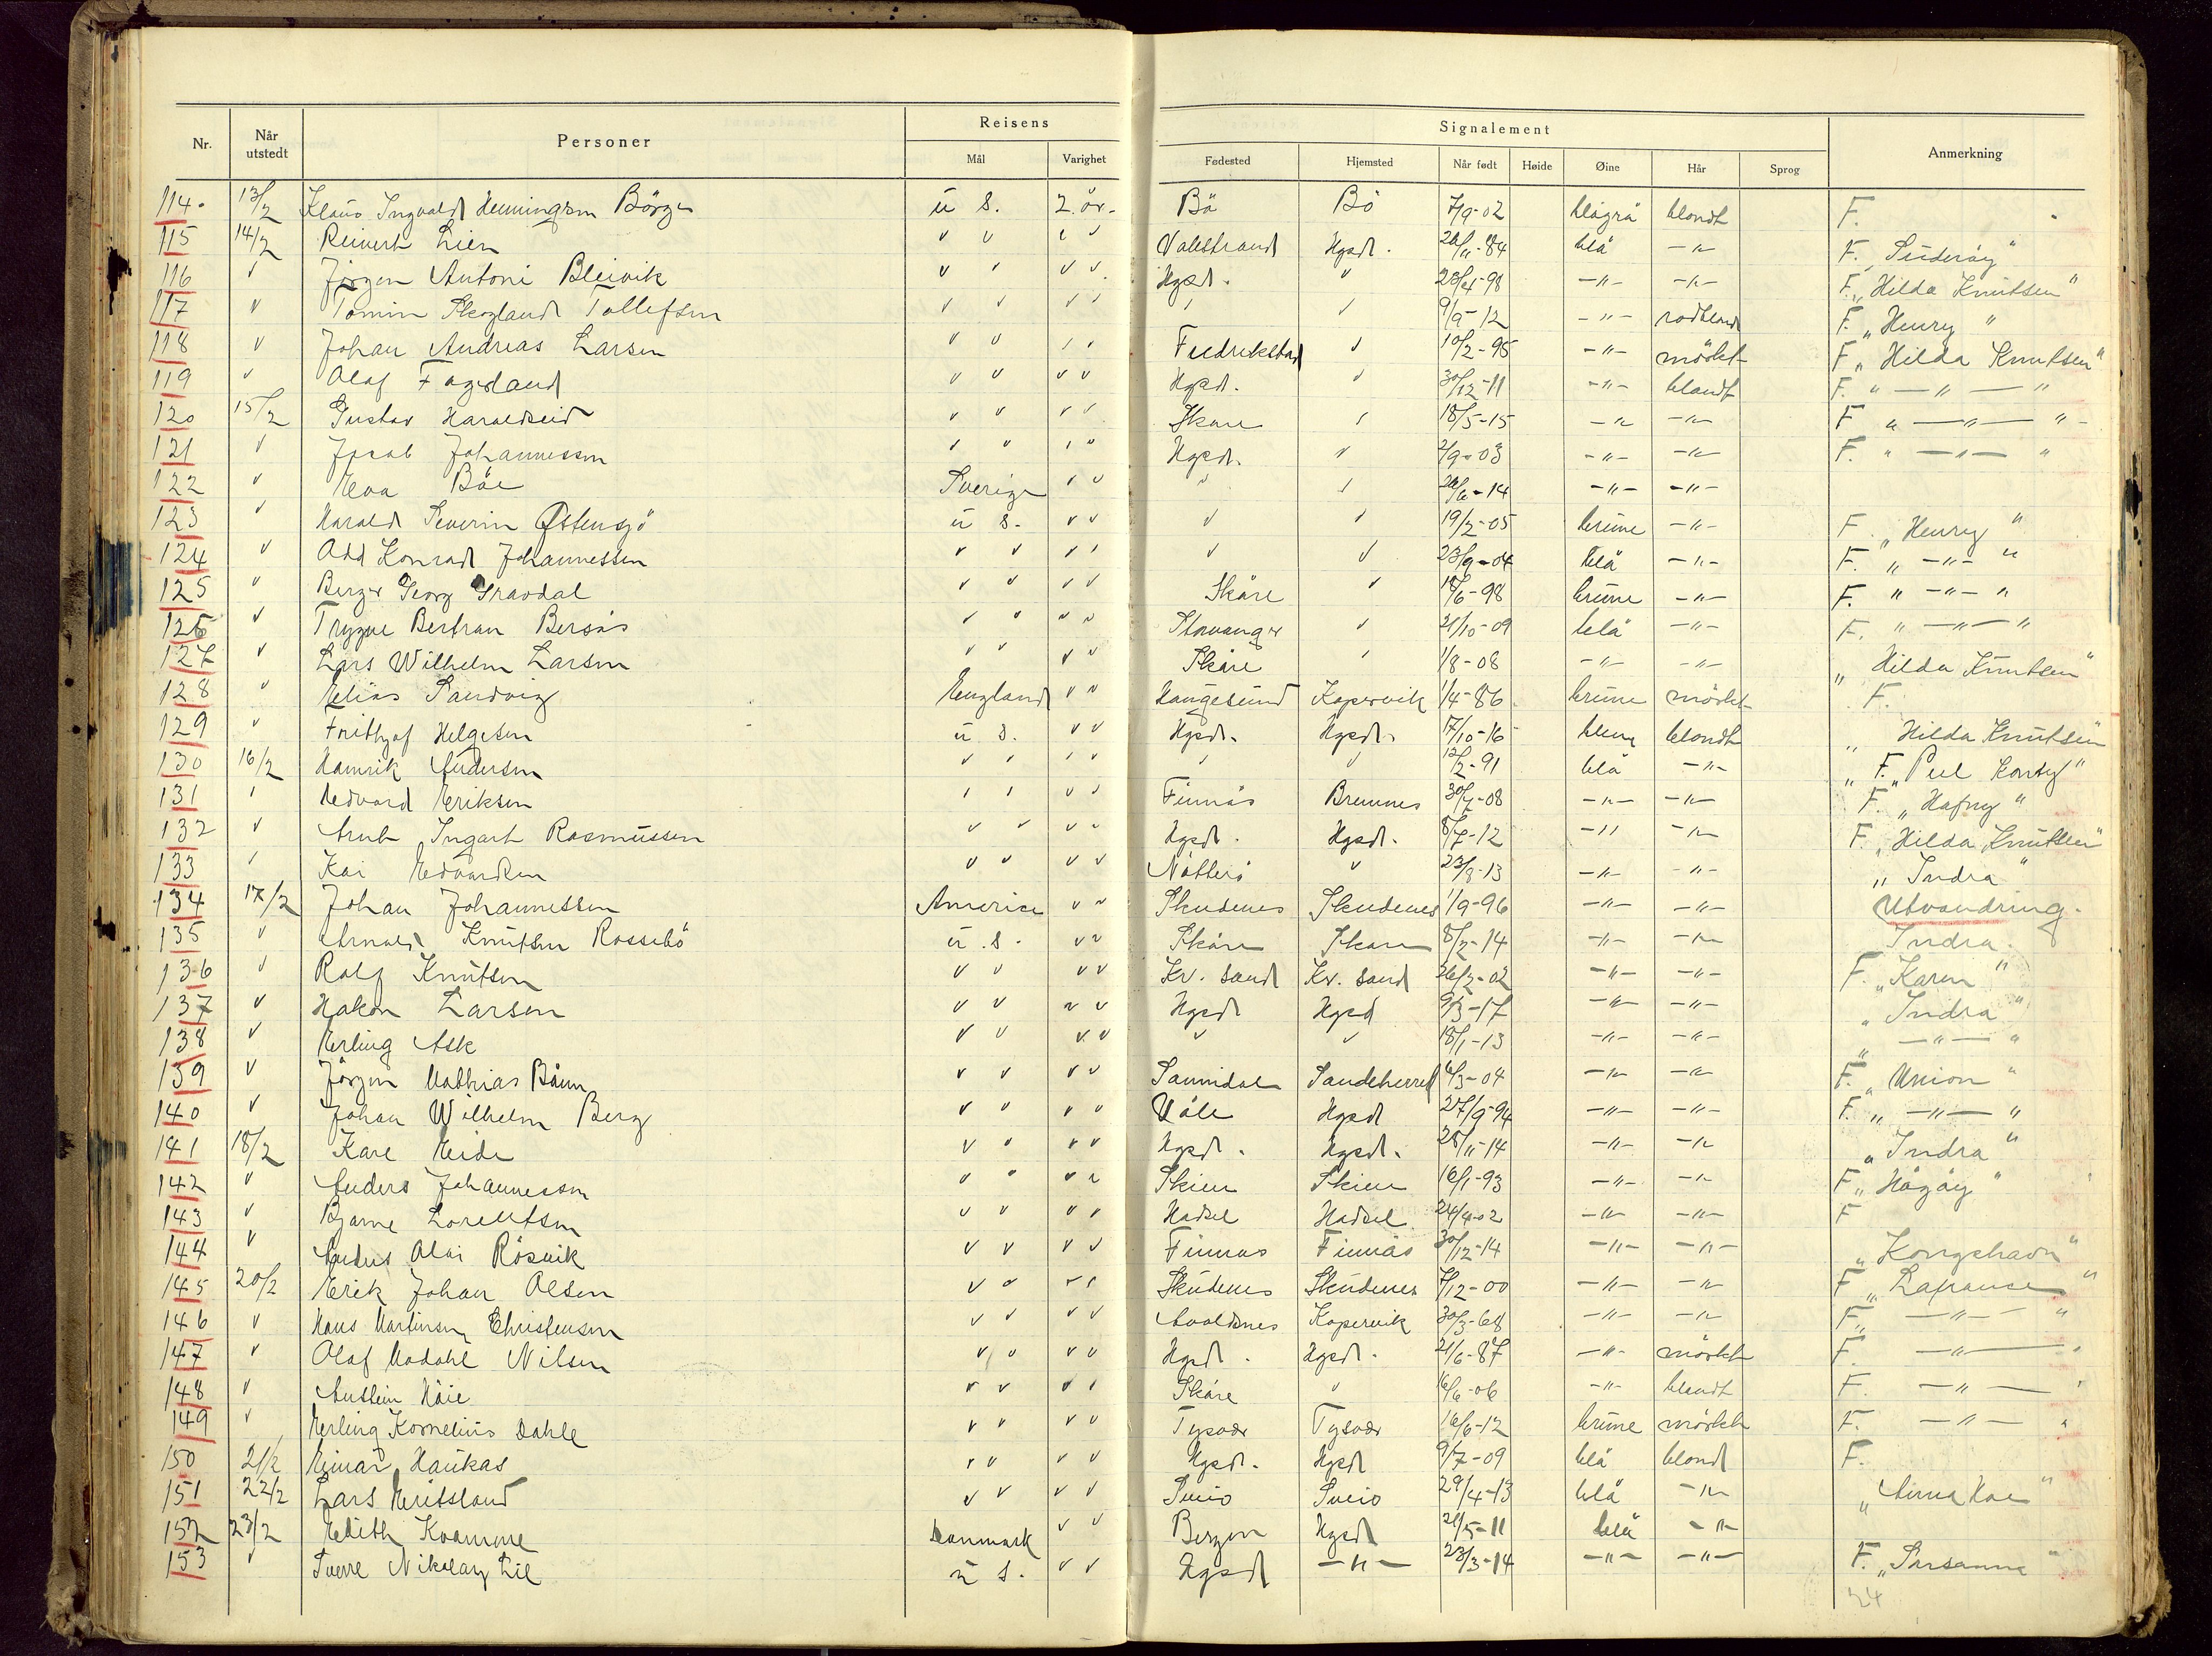 Nr. Når utstedt Personer Reisens Mål Varighet Signalement Fødested Hjemsted Når født Høide Øine Hår Sprog Anmerkning
114. 13/2 Klaus Ingvald Henningsen Börge u s. 2. år. Bö Bö 7/9-02 blågrå blondt F.
115 14/2 Reinert Lien v v v v Valestrand Hgsd. 26/11-84 blå -"- F. „Suderöy"
116 v Jörgen Antoni Bleivik v v v v Hgsd. v 28/4-98 -"- -"- F. „Hilda Knutsen"
117 v Skogland Tollefsen v v v v v v 9/9-12 -"- rödblond F. „Henry"
118 v Johan Andreas Larsen v v v v Fredrikstad v 10/2-95 -"- mörkt F. „Hilda Knutsen"
119 v Olaf Fagerland v v v v Hgsd. v 30/12-11 -"- blondt F. " -"- "
120 15/2 Gustav Haraldseid v v v v Skåre v 18/5-15 -"- -"- F " -"- "
121 v Jacob Johannessen v v v v Hgsd. v 2/9-03 -"- -"- F. " -"- "
122 v Eva Böe Sverige v v v v 26/6-14 -"- -"-
123 v Harald Severin Østensjö u s. v v v v 19/2-05 brune -"- F. „Henry"
124 v Odd Konrad Johannessen v v v v v v 23/9-04 blå -"- F. „ -"- "
125 v Berger Georg Gravdal v v v v Skåre v 18/6-98 brune -"- F. " -"- "
126 v Trygve Bertran Bersås v v v v Stavanger v 21/10-09 blå -"- F. " -"- "
127 v Lars Wilhelm Larsen v v v v Skåre v 1/8-08 -"- -"- „Hilda Knutsen"
128 v Elias Sandvig England v v Haugesund Kopervik 1/4-86 brune mörkt F.
129 v Frithjof Helgesen u s. v v Hgsd. Hgsd. 17/10-16 blondt „Hilda Knutsen"
130 16/2 Henrik Andersen v v v v v v 12/2-91 blå -"- „F.
131 v Edvard Eriksen v v v v Finnås Bremnes 30/7-08 -"- -"- F. „Hafny"
132 v Arnt Ingart Rasmussen v v v v Hgsd. Hgsd. 8/7-12 -"- -"- F. „Hilda Knutsen"
133 v Kai Edvardsen v v v v Nötterö v 23/8-13 -"- -"- „Indra"
134 17/2 Johan Johannessen America v v Skudenes Skudenes 1/9-96 -"- -"- Utvandring.
135 v Arnold Knutsen Rossebö u.s. v v Skåre Skåre 8/2-14 -"- -"- Indra.
136 v Rolf Knutsen v v v v Kr. sand Kr. sand 26/2-02 -"- -"- F. „Karen"
137 v Hakon Larsen v v v v Hgsd Hgsd 9/3-17 -"- -"- „Indra"
138 v Erling Ask v v v v v v 18/1-13 -"- -"- „ -"- "
139 v Jörgen Mathias v v v v Sannidal Sandeherred 6/3-04 -"- -"- F. „Union"
140 v Johan Wilhelm Berg v v v v Våle Hgsd 27/9-94 -"- -"- F. „ -"- "
141 18/2 Kare Eide v v v v Hgsd. Hgsd. 28/11-14 -"- -"- „Indra"
142 v Anders Johannessen v v v v Skien Skien 16/1-93 -"- -"- F „Hågöy"
143 v Bjarne Lorentsen v v v v Hadsel Hadsel 24/4-02 -"- -"- F
144 v Anders Olai Rösvik v v v v Finnås Finnås 30/12-14 -"- -"- „Kongshavn"
145 20/2 Erik Johan Olsen v v v v Skudenes Skudenes 7/12-00 -"- -"- F „Lafranse"
146 v Hans Martinsen Christensen v v v v Avaldsnes Kopervik 30/3-68 -"- -"- F „ -"- "
147 v Olaf Modahl Nilsen v v v v Hgsd. Hgsd. 21/6-87 -"- mörkt F. -"- "
148 v Austein Höie v v v v Skåre v 16/6-06 -"- blondt F. -"- "
149 v Erling Kornelius Dahle v v v v Tysvær Tysvær 16/6-12 brune mörkt F. -"- "
150 21/2 Einar Haukas v v v v Hgsd. Hgsd 9/7-09 blå blond F.
151 22/2 Lars Eritsland v v v v Sveio Sveio 29/4-13 blå -"- „Anna Mae"
152 23/2 Edith Kvamme Danmark v v Bergen Hgsd 21/5-11 blå -"-
153 v Sverre Nikolay Lie u s. v v Hgsd -"- 23/3-14 -"- -"- F. „Susanna"
24